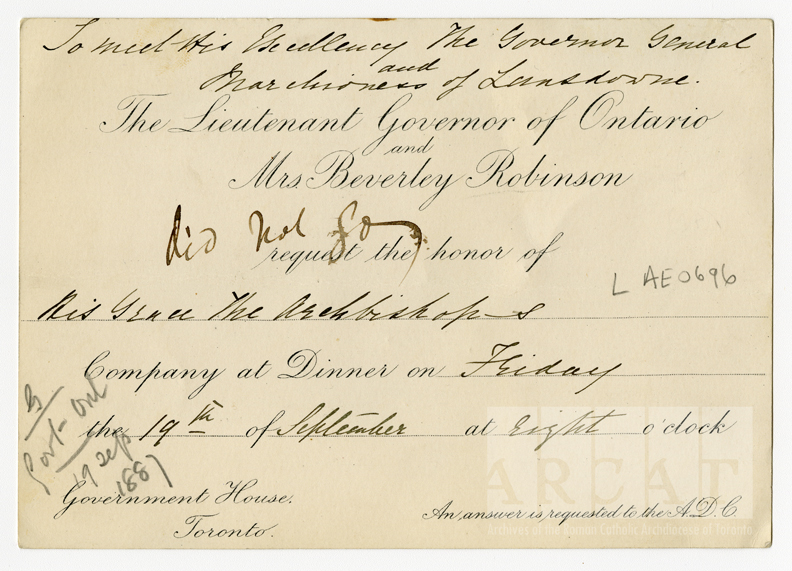 To meet His Excellency The Governor General
and
Marchioness of Lansdowne.
The Lieutenant Governor of Ontario
and
Mrs Beverley Robinson
Did Not Go
request the honor of
L AE0696
His Grace The Archbishop-s
Company at Dinner on Friday
the 19th of September at Eight o'clock
Govt- Ont
19 sep
1887
Government House.
Toronto.
An answer is requested to the A.D.C
ARCAT
Archives of the Roman Catholic Archdiocese of Toronto